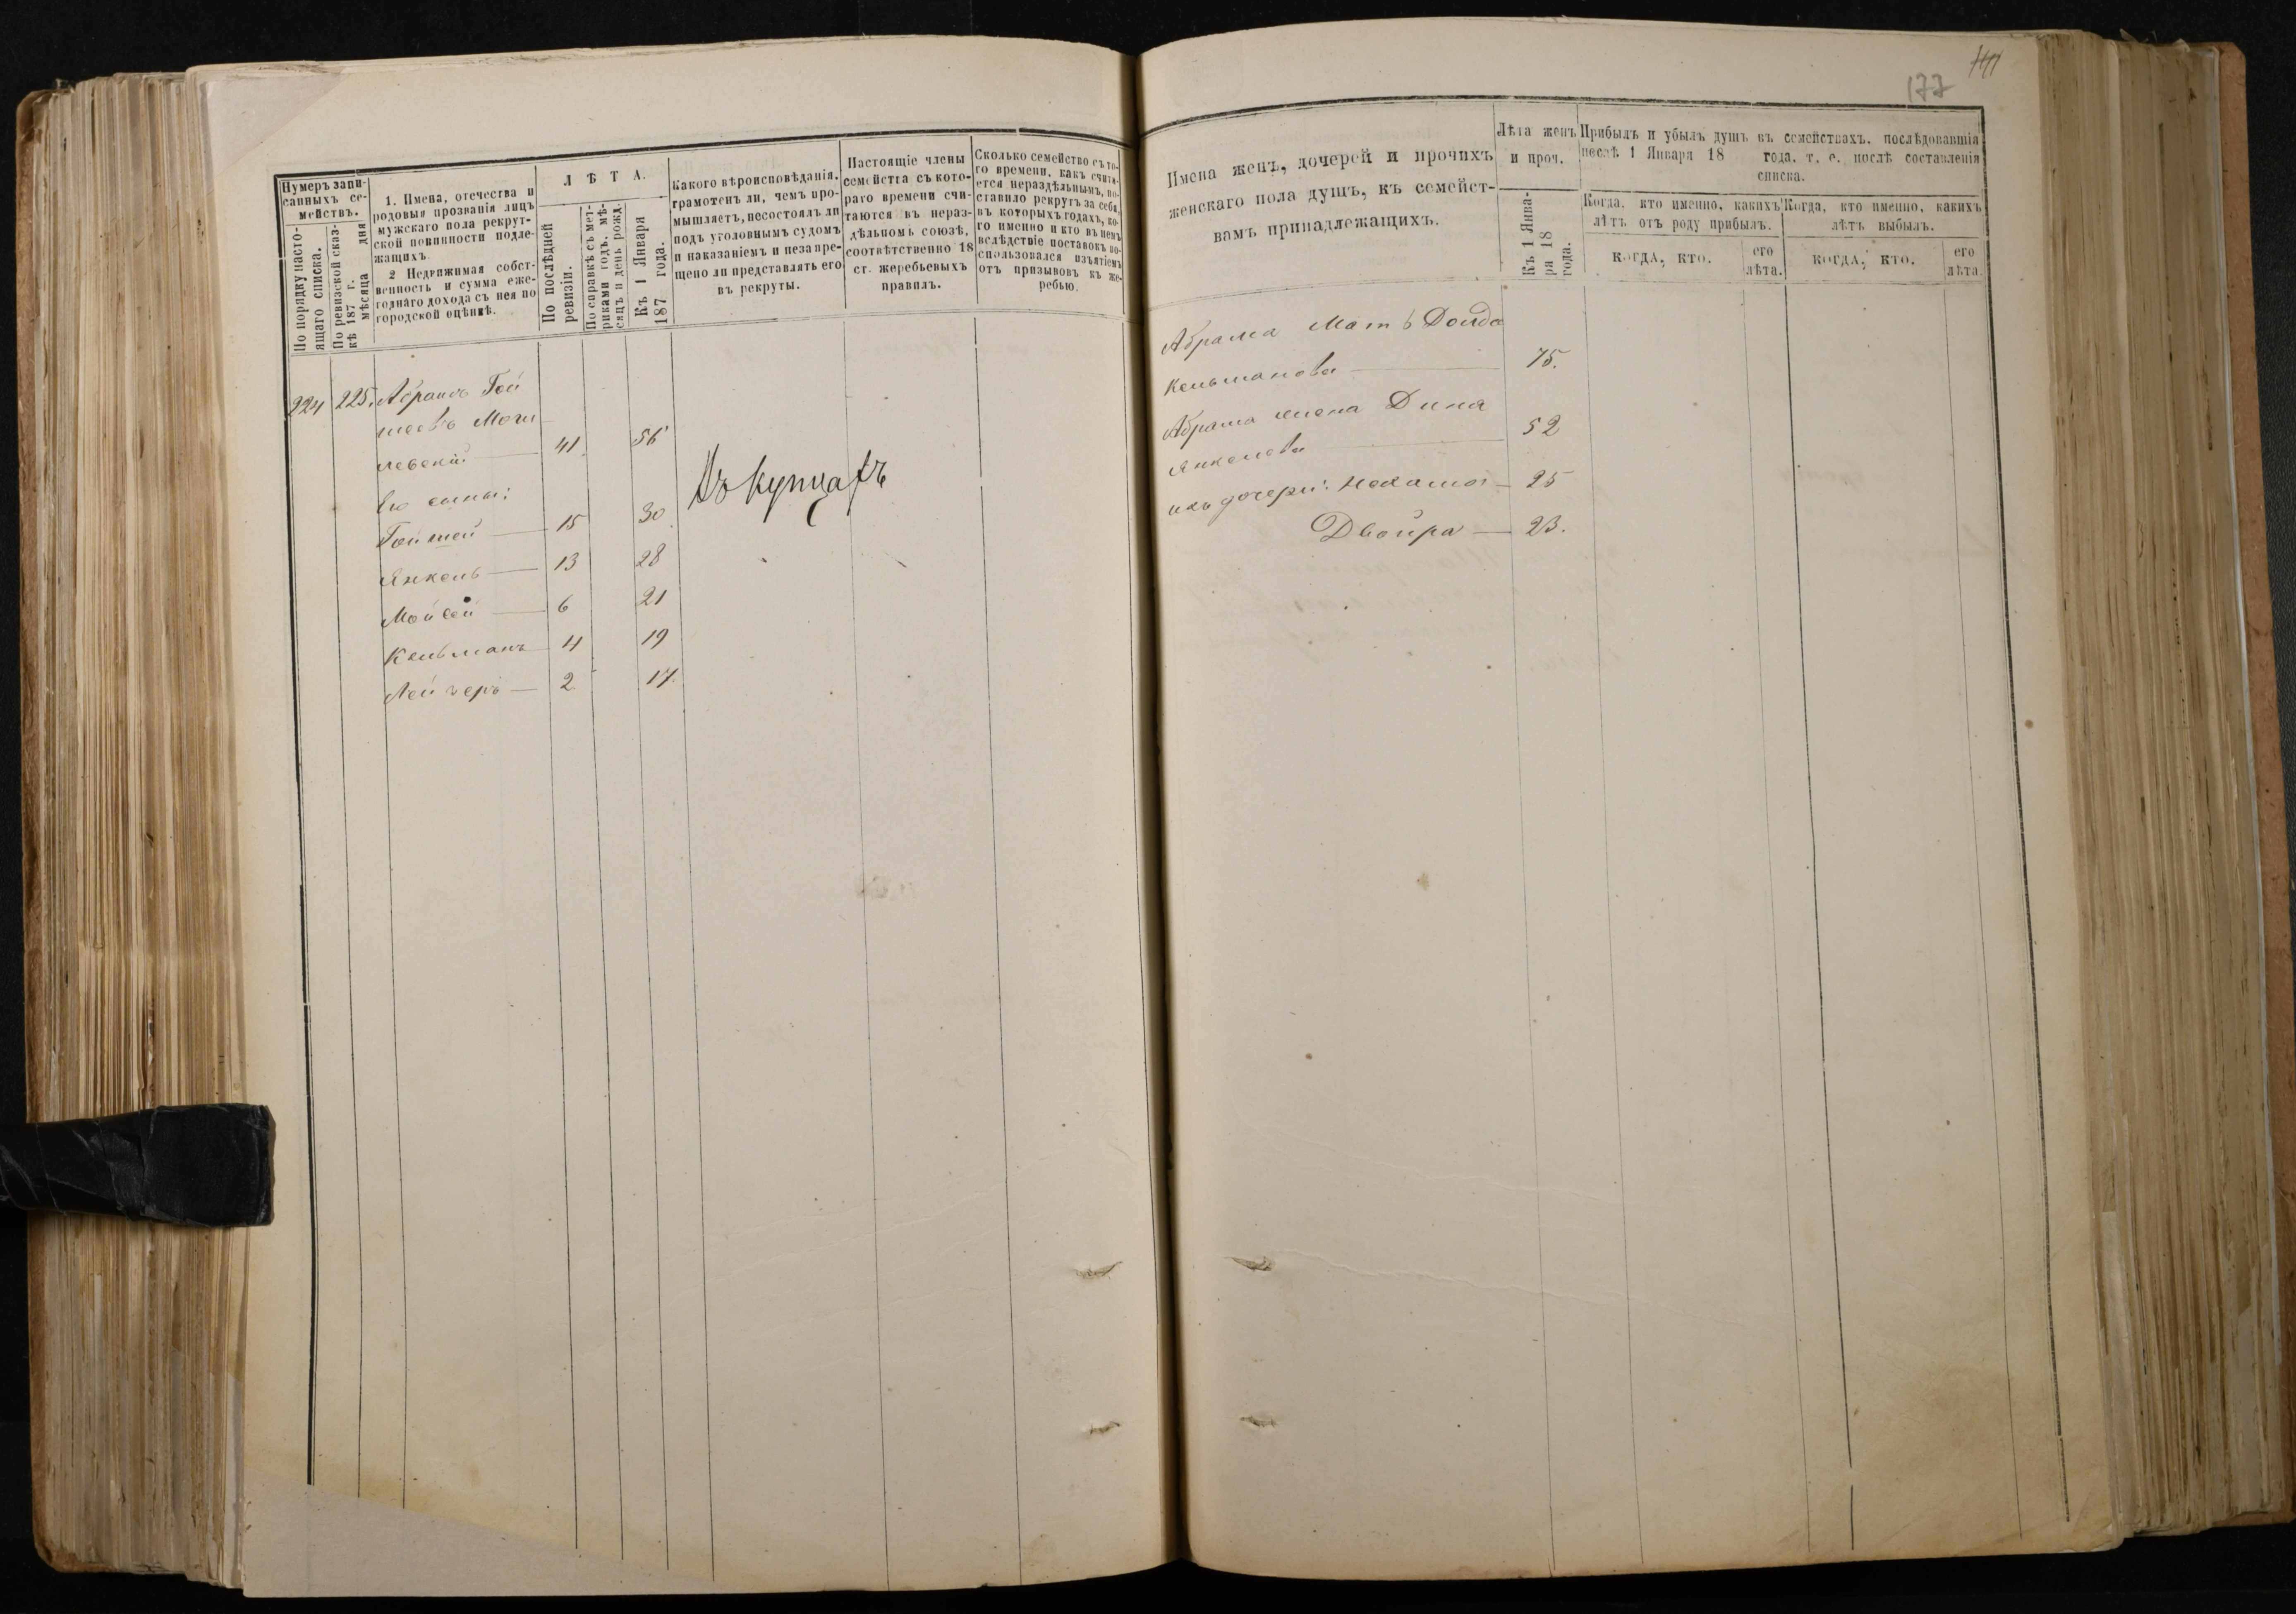 177
Нумеръ запи-
санныхъ се-
мействъ.
По порядку насто-
ящаго списка.
По ревизской сказ-
кѣ 187 г. дня
мѣсяца
1. Имена, отечества и
родовыя прозванія лицъ
мужскаго пола рекрут-
ской повинности подле-
жащихъ.
2 Недвижимая собст-
венность и сумма еже-
годнаго дохода съ нея по
городской оцѣнкѣ.
ЛѢТА.
По послѣдней
ревизіи.
По справкѣ съ мет-
риками годъ, мѣ-
сяцъ и день рожд.
Къ 1 Января
187 года.
Какого вѣроисповѣданія,
грамотенъ ли, чемъ про-
мышляетъ, несостоялъ ли
подъ уголовнымъ судомъ
и наказаніемъ и незапре-
щено ли представлять его
въ рекруты.
Настоящіе члены
семейства съ кото-
раго времени счи-
таются въ нераз-
дѣльномъ союзѣ,
соотвѣтственно 18
ст. жеребьевыхъ
правилъ.
Сколько семейство съ то-
го времени, какъ счита-
ется нераздѣльнымъ, по-
ставило рекрутъ за себя,
въ которыхъ годахъ, ко-
го именно и кто въ немъ
вслѣдствіе поставокъ во-
спользовался изъятіемъ
отъ призывовъ къ же-
ребью.
224 225. Абрамъ Гой
шеевъ Моги
левскій 41 56
Его сыны:
Гойшей 15 30
Янкель 13 28
Мойсей 6 21
Кельманъ 4 19
Лейзеръ 2 17.
Въ купцахъ
Имена женъ, дочерей и прочихъ
женскаго пола душъ, къ семейст-
вамъ принадлежащихъ.
Лѣта женъ
и проч.
Къ 1 Янва-
ря 18
года.
Прибыль и убыль душъ въ семействахъ, послѣдовавшія
послѣ 1 Января 18 года, т. е. послѣ составленія
списка.
Когда, кто именно, какихъ
лѣтъ отъ роду прибылъ.
Когда, кто именно, какихъ
лѣтъ выбылъ.
когда, кто.
его
лѣта.
когда, кто.
его
лѣта.
Абрама Мать
Кельманова 75.
Абрама жена Дина
Янкелева 52
ихъ дочери: Нехама 25
Двойра 23.